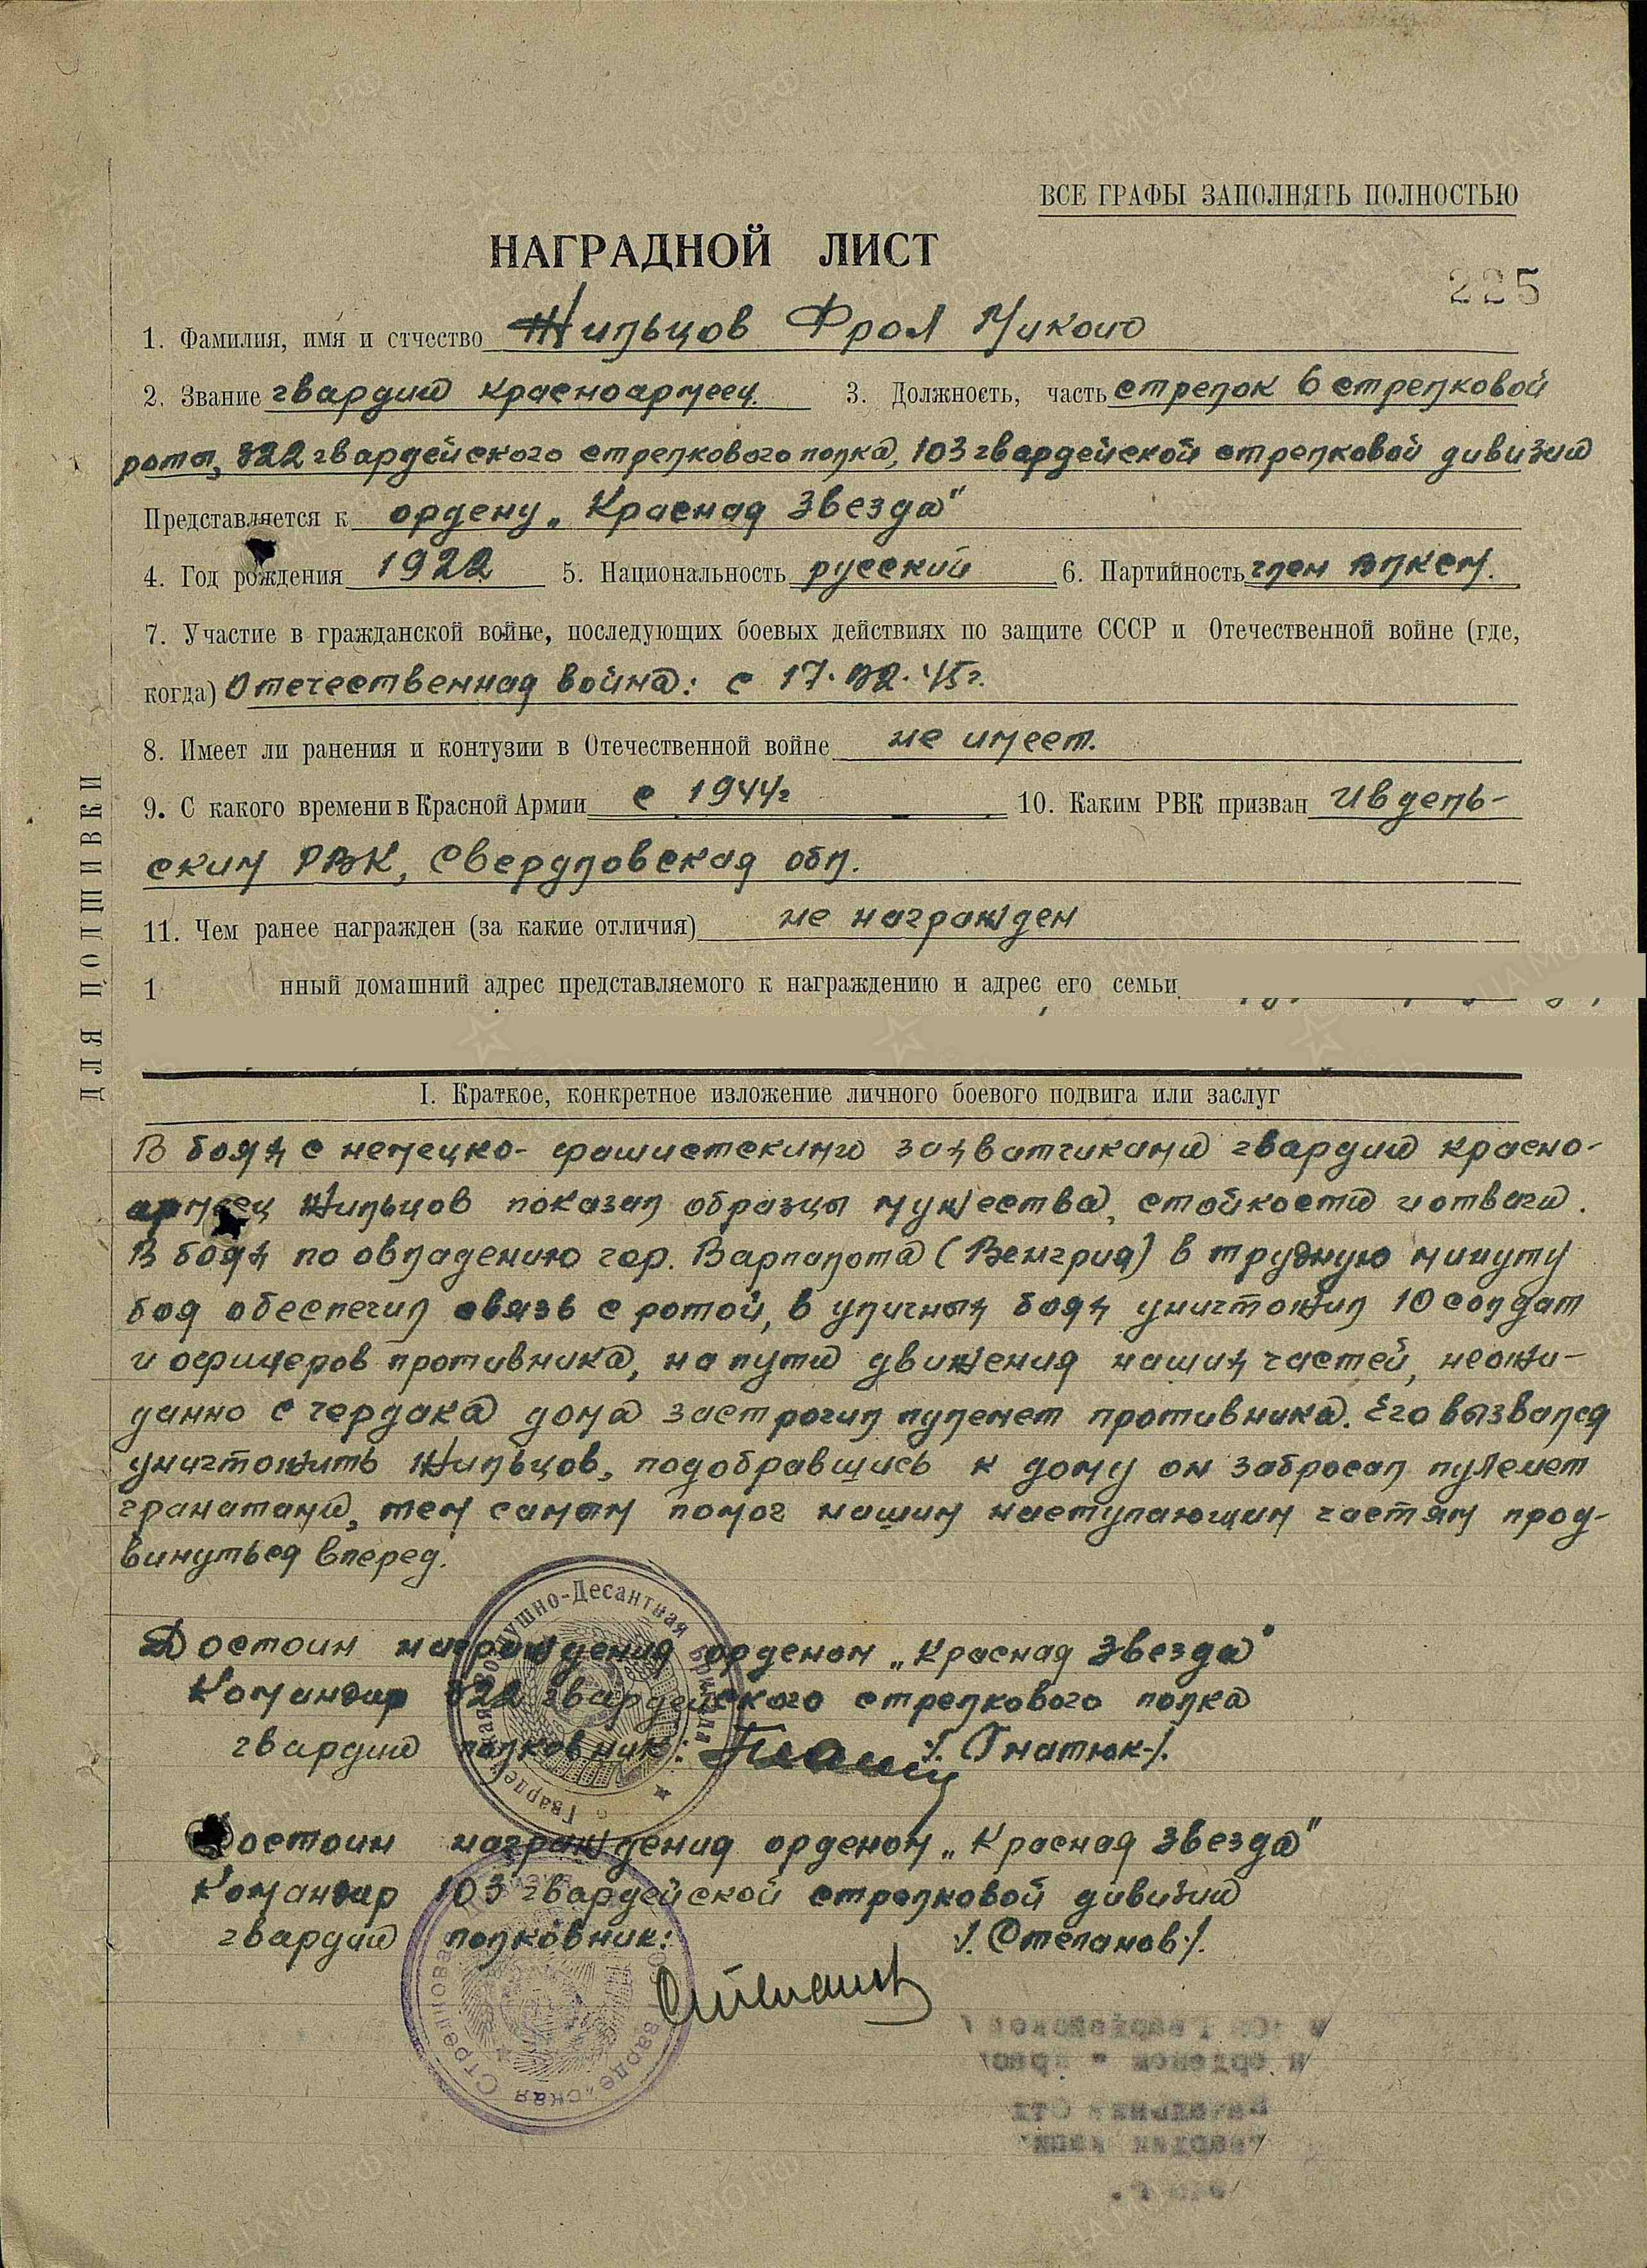 ВСЕ ГРАФЫ ЗАПОЛНЯТЬ ПОЛНОСТЬЮ
НАГРАДНОЙ ЛИСТ
225
1. Фамилия, имя и отчество Жильцов Фрол
2. Звание гвардии красноармеец. 3. Должность, часть стрелок 6 стрелковой
роты, 322 гвардейского стрелкового полка, 103 гвардейской стрелковой дивизии
Представляется к ордену „Красная Звезда"
4. Год рождения 1922 5. Национальность русский 6. Партийность член ВЛКСМ.
7. Участие в гражданской войне, последующих боевых действиях по защите СССР и Отечественной войне (где,
когда) Отечественная война: с 17. 02. 45г.
8. Имеет ли ранения и контузии в Отечественной войне не имеет.
9. С какого времени в Красной Армии с 1944г 10. Каким РВК призван Ивдель-
ским РВК, Свердловская обл.
11. Чем ранее награжден (за какие отличия) не награжден
1 нный домашний адрес представляемого к награждению и адрес его семьи
ДЛЯ ПОДШИВКИ
I. Краткое, конкретное изложение личного боевого подвига или заслуг
В боях с немецко-фашистскими захватчиками гвардии красно-
армеец Жильцов показал образцы мужества, стойкости и отваги.
В боях по овладению гор. Варпалота (Венгрия) в трудную минуту
боя обеспечил связь с ротой, в уличных боях уничтожил 10 солдат
и офицеров противника, на пути движения наших частей, неожи-
данно с чердака дома застрочил пулемет противника. Его вызвался
уничтожить Жильцов, подобравшись к дому он забросал пулемет
гранатами, тем самым помог нашим наступающим частям прод-
винуться вперед.
Достоин награждения орденом „Красная Звезда"
Командир 322 гвардейского стрелкового полка
гвардии полковник: /. Гнатюк./.
Достоин награждения орденом „Красная Звезда"
Командир 103 гвардейской стрелковой дивизии
гвардии полковник: /. Степанов./.